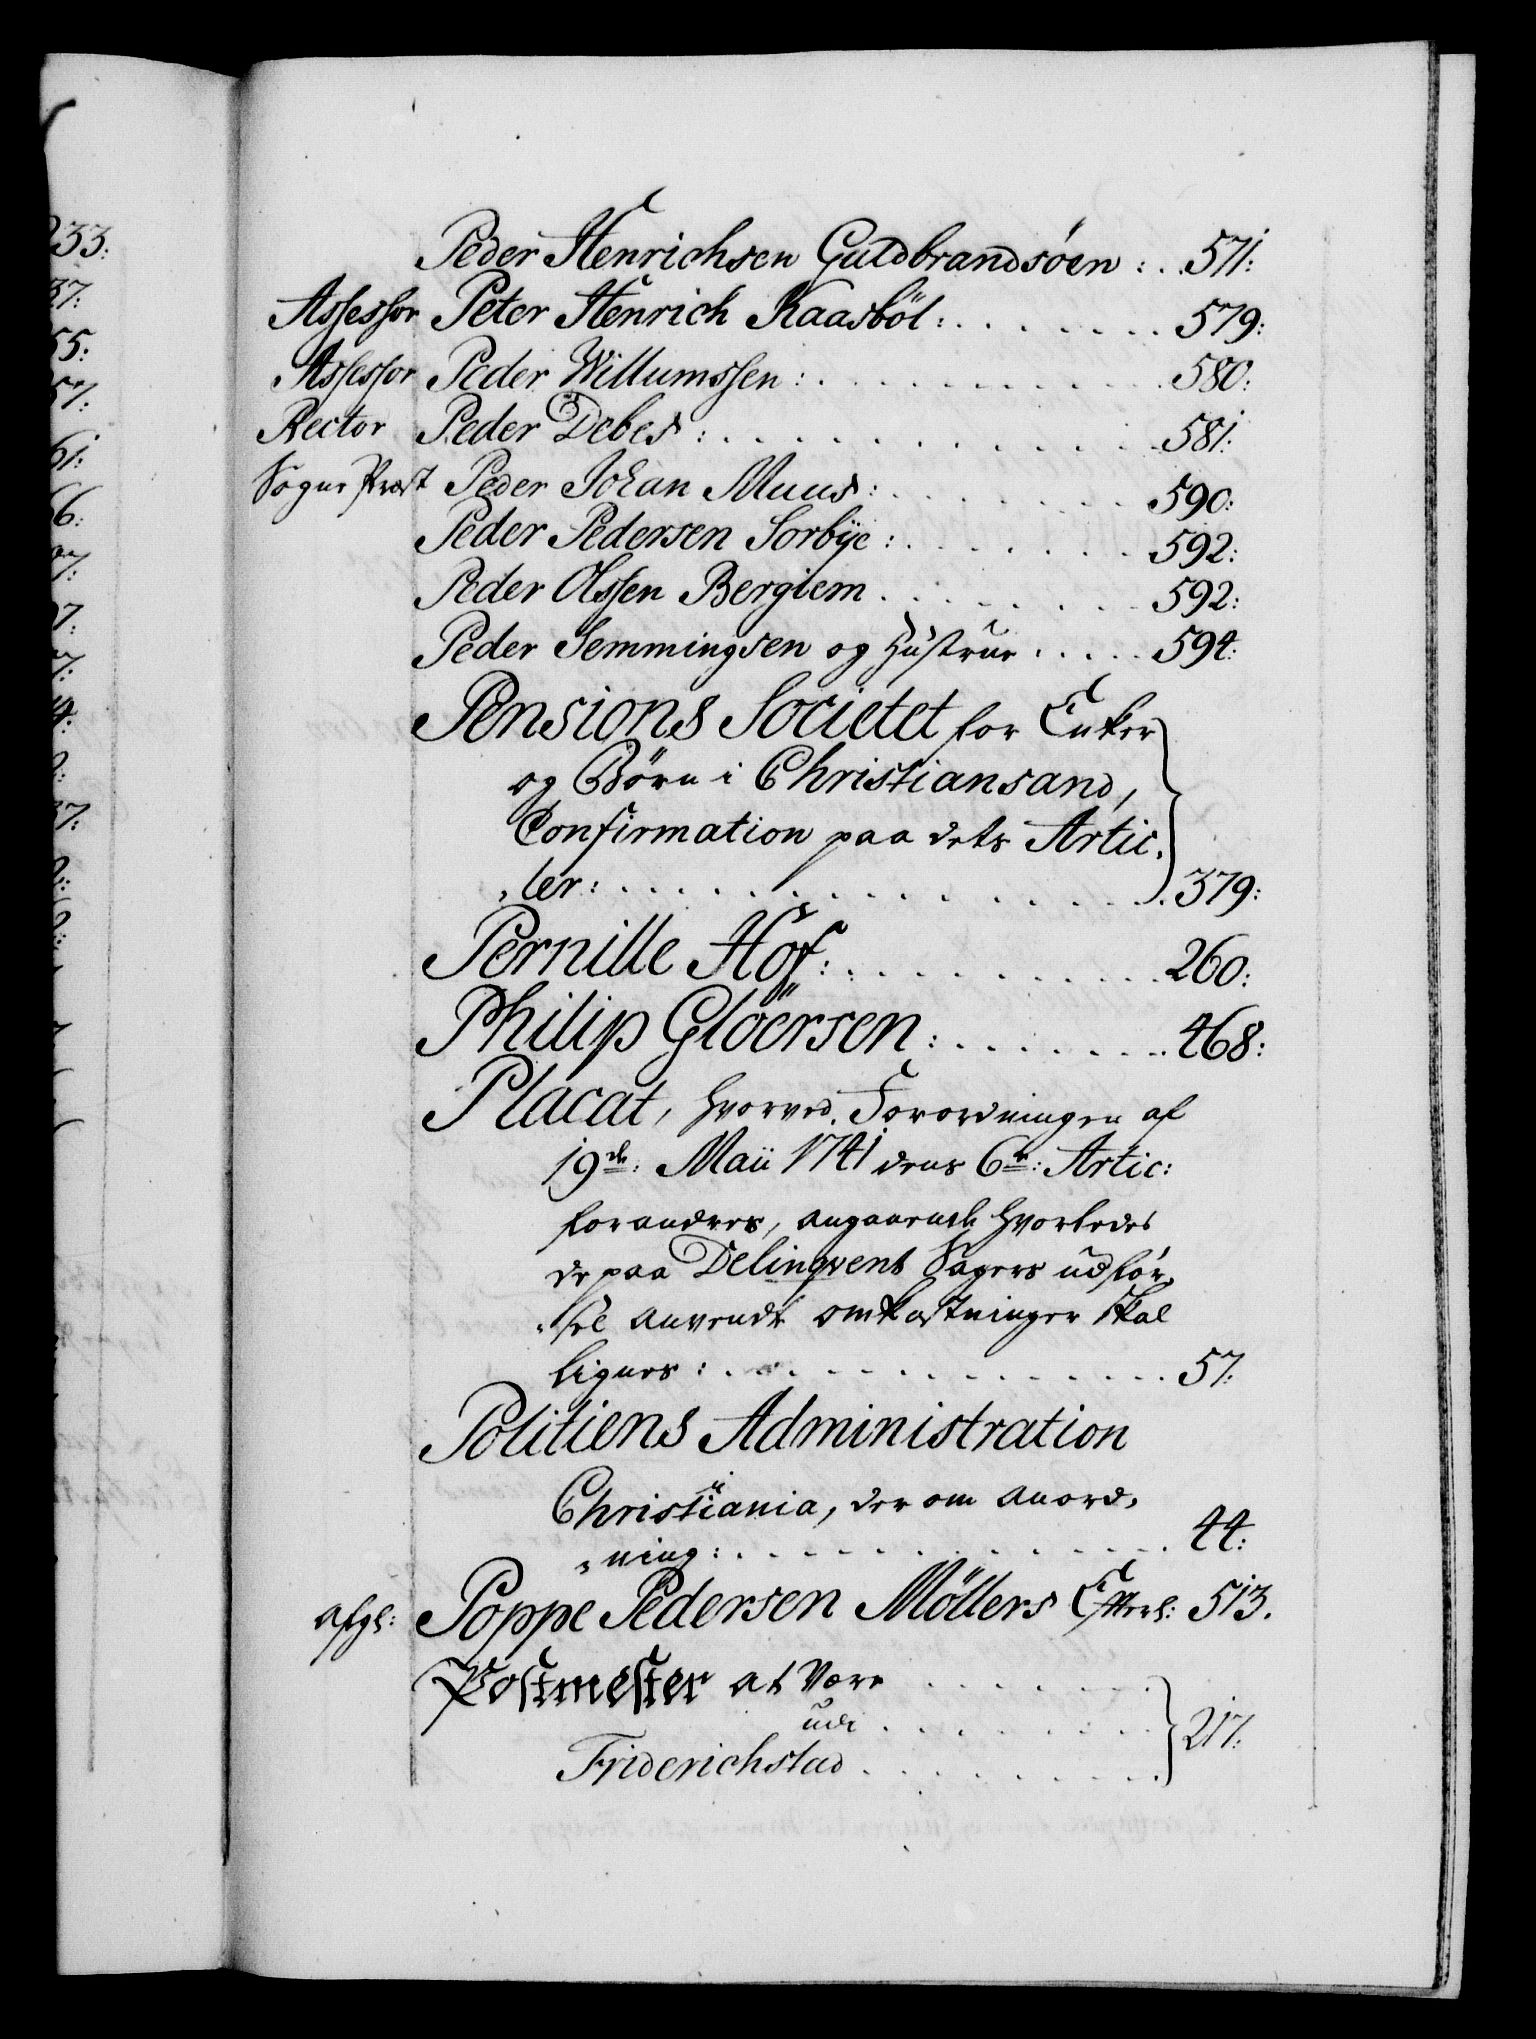 Peder Henrichsen Guldbrandsöen : . . 571:
Assessor Peter Henrich Kaasböl : . . . . . . . . 579:
Assessor Peder Willumssen : . . . . . . . . . . . . 580:
Rector Peder Debes : . . . . . . . . . . . . 581:
Sogne Præst Peder Johan Muus : . . . . . . . . . 590:
Peder Pedersen Sorbÿe : . . . . . . . . 592:
Peder Olssen Bergiem . . . . . . . . 592:
Peder Semmingsen og Hustrue . . . . . 594:
Pensions Societet for Enker
og Börn i Christiansand,
Confirmation paa dets Artic¸
„ler : . . . . . . . . . . . . . . . . . 379:
Pernille Hof : . . . . . . . . . . . 260:
Philip Glöersen : . . . . . . . . 468:
Placat, hvorved Forordningen af
19de: Maii 1741 dens 6te: Artic:
forandres, angaaende hvorledes
de paa Delinqvent Sagers udför¸
„sel anvendte omkostninger skal
lignes : . . . . . . . . . . . . . . 57:
Politiens Administration
i
Christiania, der om anord¸
„ning : . . . . . . . . . . . . . . 44:
afgl: Poppe Pedersen Möllers Efterl: 513.
Postmester at være . . . . . . .
udi . . . . . . . . . 217:
Friderichstad . . . . . . . . . .
233:
37:
55:
57:
61:
66: